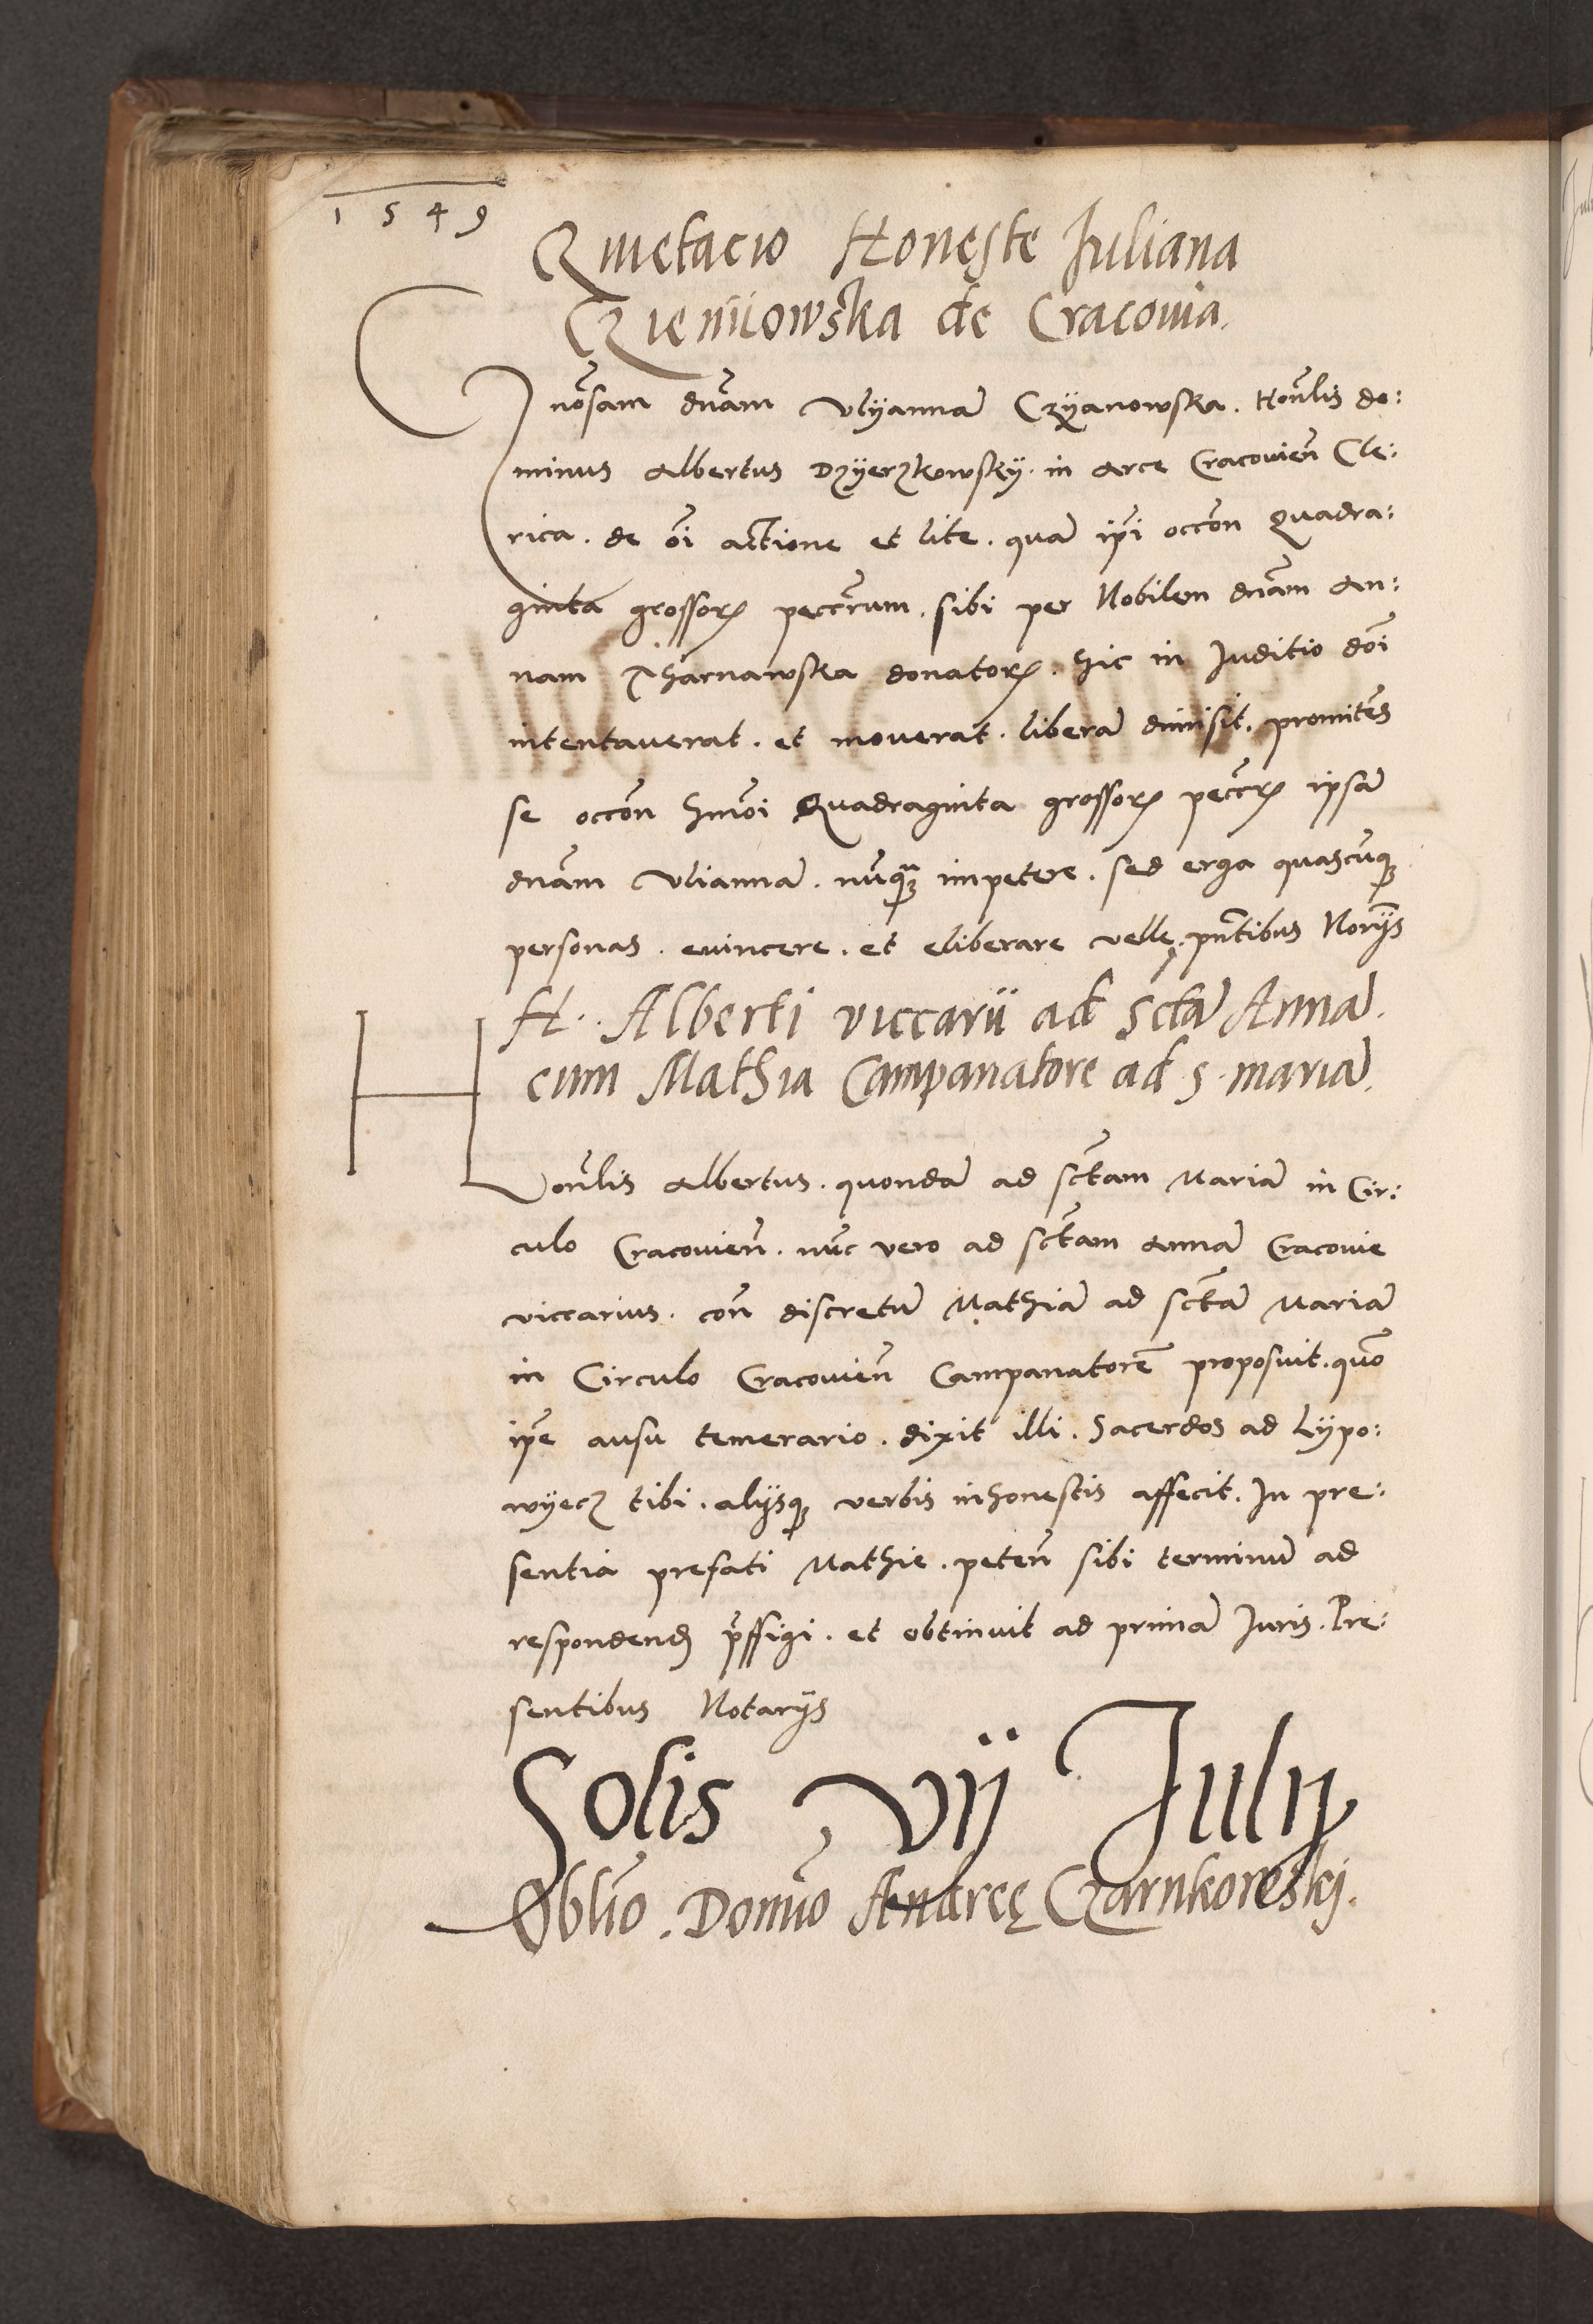 1549
Quietacio Honeste Juliana
Czieniiowska de Cracovia.
nōsam dnām Vlyannā Czyanowska. Hoūlis do:
minus Albertus Dzyerzkowsky. in Arce Cracovien̄ Cle:
rica. de oī actione et lite. quā ip̄i occōn Quadra:
ginta grossorꝝ peccr̄um. sibi per Nobilem dnām An:
nam Tharnawska donatorꝝ. hic in Juditio dōi
intentaverat. et moverat. liberā dimisit. promitēs
se occōn hmōi Quadraginta grossorꝝ pecc̄rꝝ ipsā
dnām Vliannā. nūqꝫ impetere. sed erga quascūqꝫ
personas. evincere. et eliberare velle. pn̄tibus Norijs
H. Alberti viccarii ad Sctā Annā.
cum Mathia Campanatore ad S. mariā.
Hoūlis Albertus. quondā ad sc̄tam Mariā in Cir:
culo Cracovien̄. nūc vero ad sc̄tam Annā Cracovie
viccarius. con̄ discretū Mathiā ad sc̄tā Mariā
in Circulo Cracovien̄ Campanatorē proposuit. quō
ip̄e ausu temerario. dixit illi. Sacerdos ad Lypo:
wyecz tibi. alijsqꝫ verbis inhonestis affecit. In pre:
sentia prefati Mathie. peten̄ sibi terminū ad
respondendꝫ p̄ffigi. et obtinuit ad primā Juris. Pre:
sentibus Notarijs
Solis vij Julij
Obliō. Domīo Andreę Czarnkoweskj.